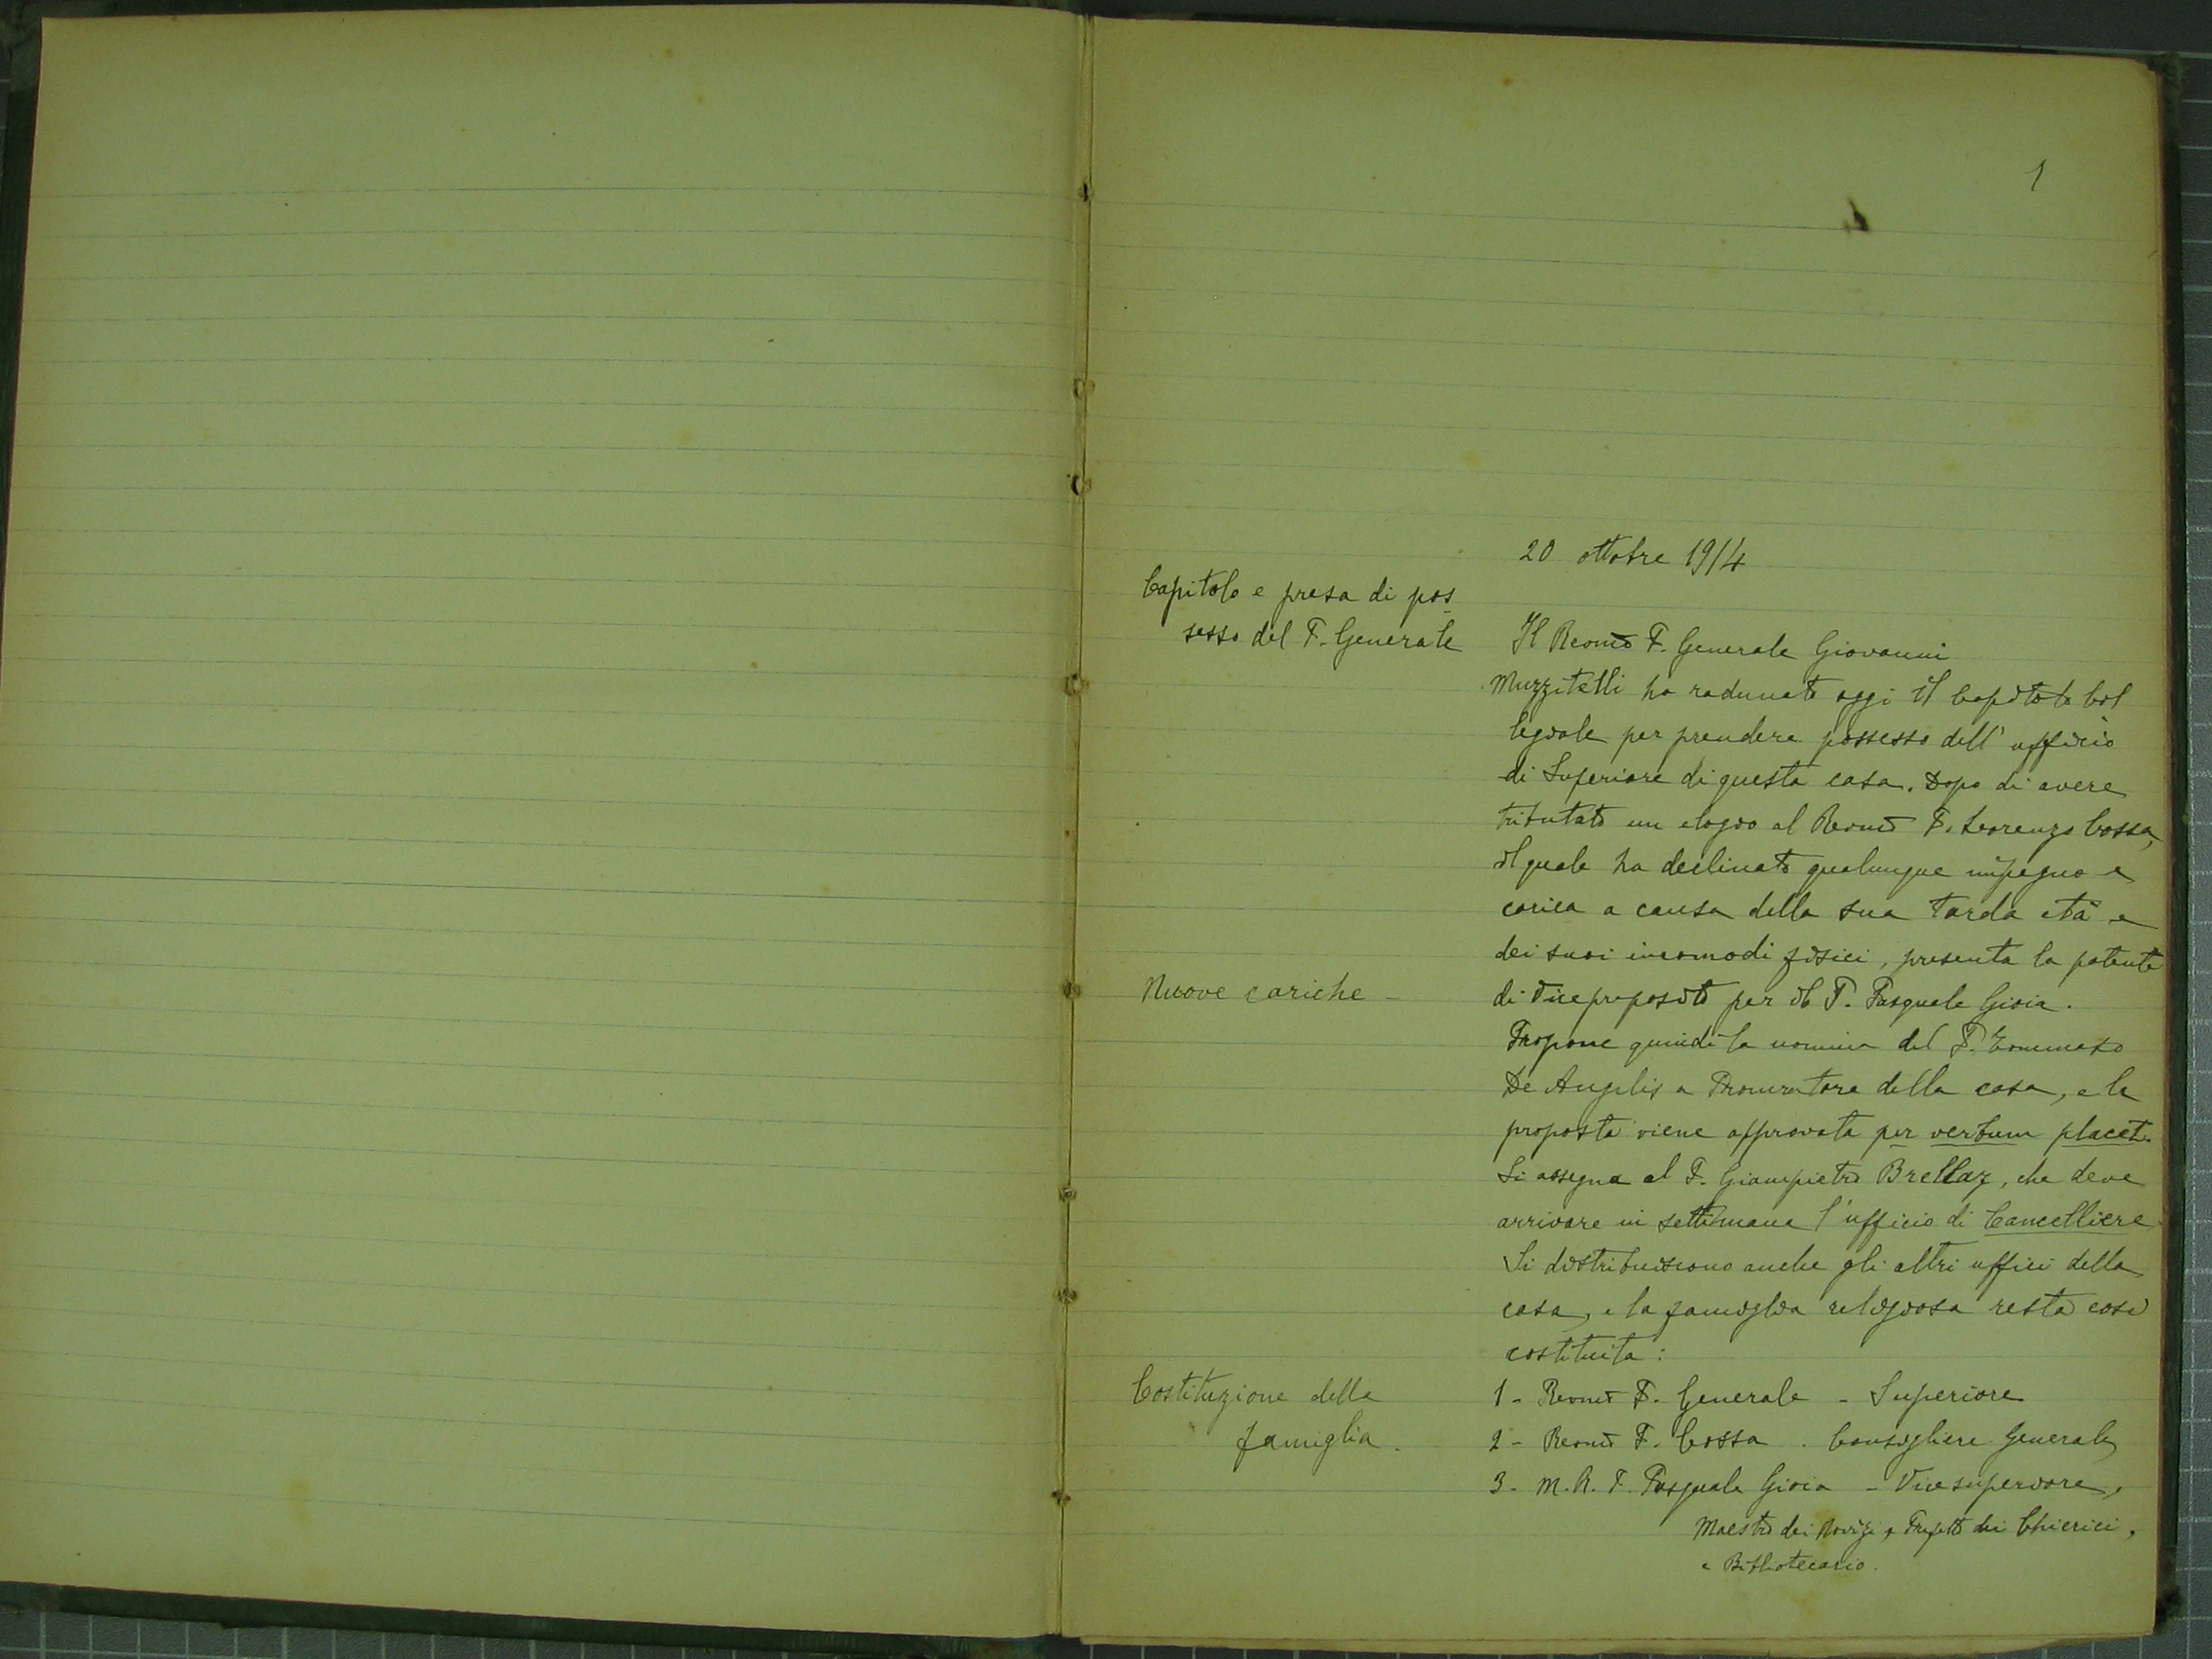 1
20 ottobre 1914
Capitolo e presa di pos
sesso del P. Generale
Il Revmo P. Generale Giovanni
Muzzitelli ha radunato oggi il Capitolo Col
legiale per prendere possesso dell' ufficio
di Superiore di questa casa. Dopo di avere
tributato un elogio al Revmo P. Lorenzo Cossa,
il quale ha declinato qualunque impegno e
carica a causa della sua tarda età e
dei suoi incomodi fisici, presenta la patente
Nuove cariche -
di Vicepreposito per il P. Pasquale Gioia.
Propone quindi la nomina del P. Tommaso
De Angelis a Procuratore della casa, e la
proposta viene approvata per verbum placet.
Si assegna al P. Giampietro Brellaz, che deve
arrivare in settimana l'ufficio di Cancelliere
Si distribuiscono anche gli altri uffici della
casa, e la famiglia religiosa resta così
costituita:
Costituzione della
famiglia.
1 - Revmo P. Generale - Superiore
2 - Revmo P. Cossa . Consigliere Generale
3 - M. R. P. Pasquale Gioia - Vicesuperiore,
Maestro dei Novizi e Prefetto dei Chierici,
e Bibliotecario.